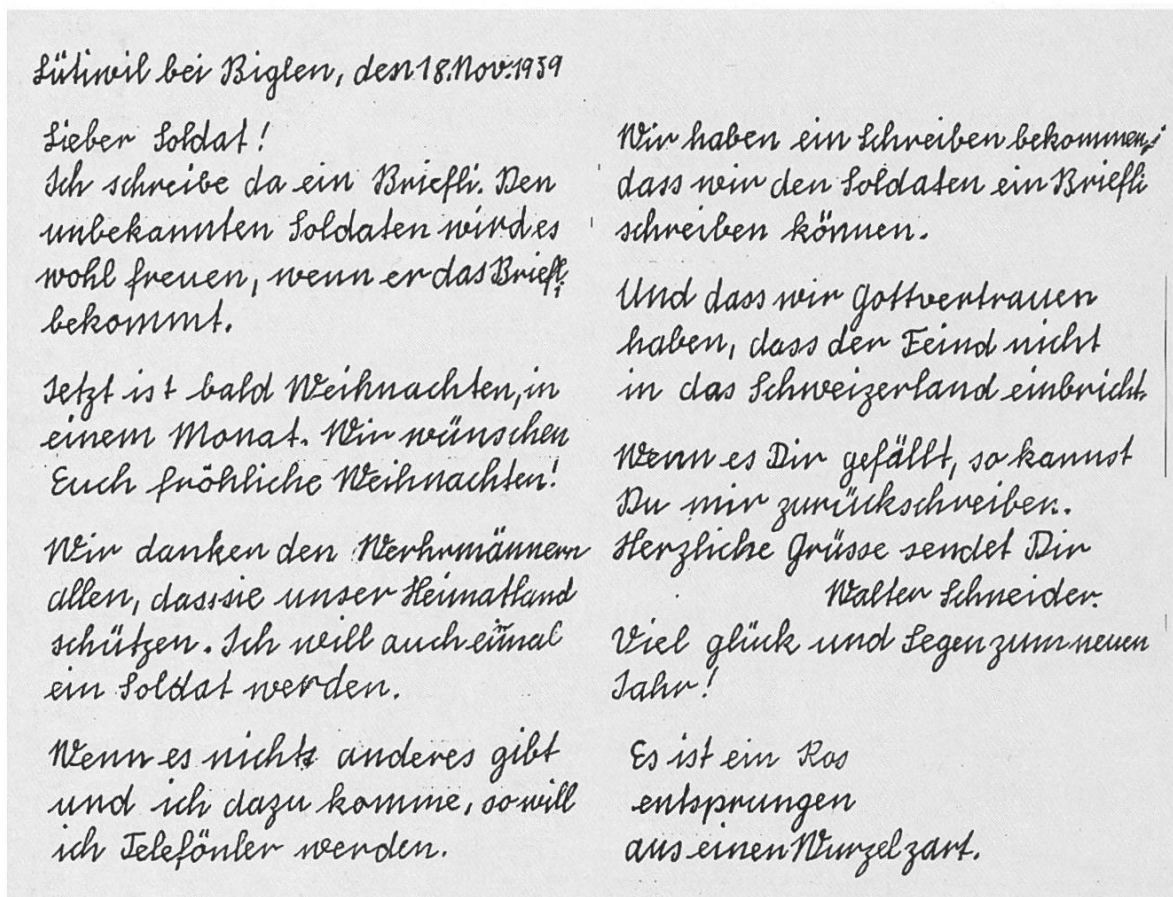 Lütiwil bei Biglen, den 18. Nov. 1939
Lieber Soldat!
Ich schreibe da ein Briefli. Den
unbekannten Soldaten wird es
wohl freuen, wenn er das Briefli
bekommt.
Jetzt ist bald Weihnachten, in
einem Monat. Wir wünschen
Euch fröhliche Weihnachten!
Wir danken den Werhrmännern
allen, dass sie unser Heimatland
schützen. Ich will auch einmal
ein Soldat werden.
Wenn es nichts anderes gibt
und ich dazu komme, so will
ich Telefönler werden.
Wir haben ein Schreiben bekommen,
dass wir den Soldaten ein Briefli
schreiben können.
Und dass wir Gottvertrauen
haben, dass der Feind nicht
in das Schweizerland einbricht.
Wenn es Dir gefällt, so kannst
Du mir zurückschreiben.
Herzliche Grüsse sendet Dir
Walter Schneider.
Viel glück und Segen zum neuen
Jahr!
Es ist ein Ros
entsprungen
aus einen Wurzel zart.